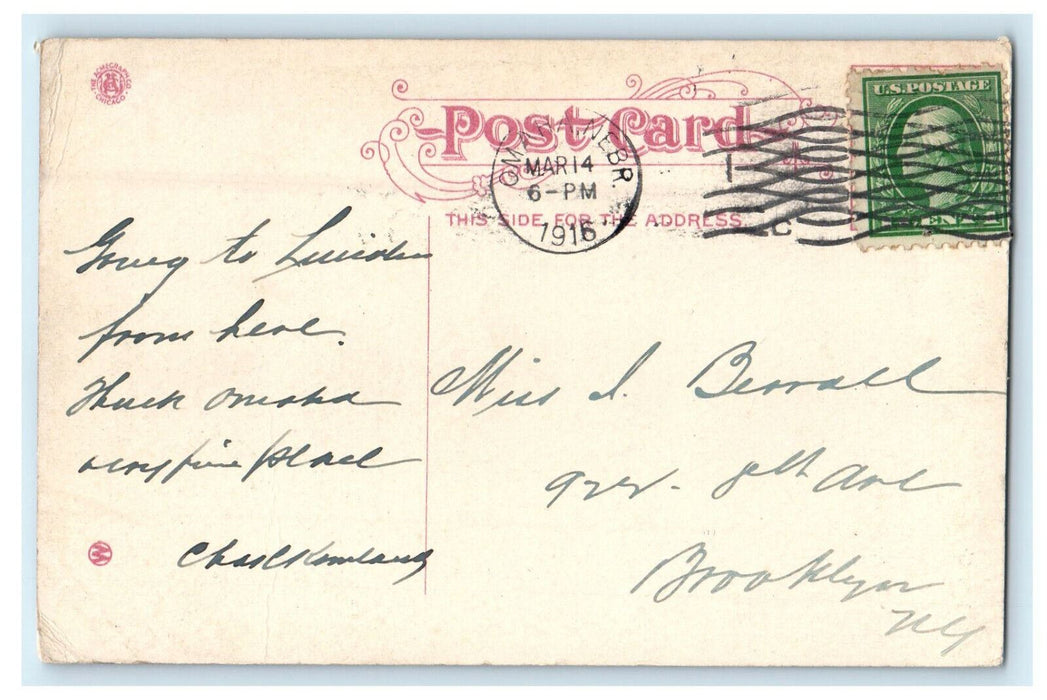 THE ACMEGRAPH CO.
CHICAGO
Post Card
OMAHA, NEBR.
MAR 14
6-PM
1916
U.S. POSTAGE
THIS SIDE FOR THE ADDRESS.
Going to Lincoln
from here.
Think Omaha
very fine place
Chas
Miss I. Berrall
922. 8th Ave
Brooklyn
NY